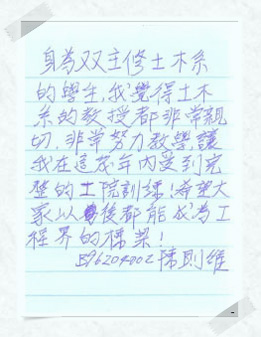 身為双主修土木系
的學生,我覺得土木
系的教授都非常親
切,非常努力教學,讓
我在這幾年內受到完
整的工院訓練!希望大
家以後都能成為工
程界的棟樑!
B96204002 陳則維